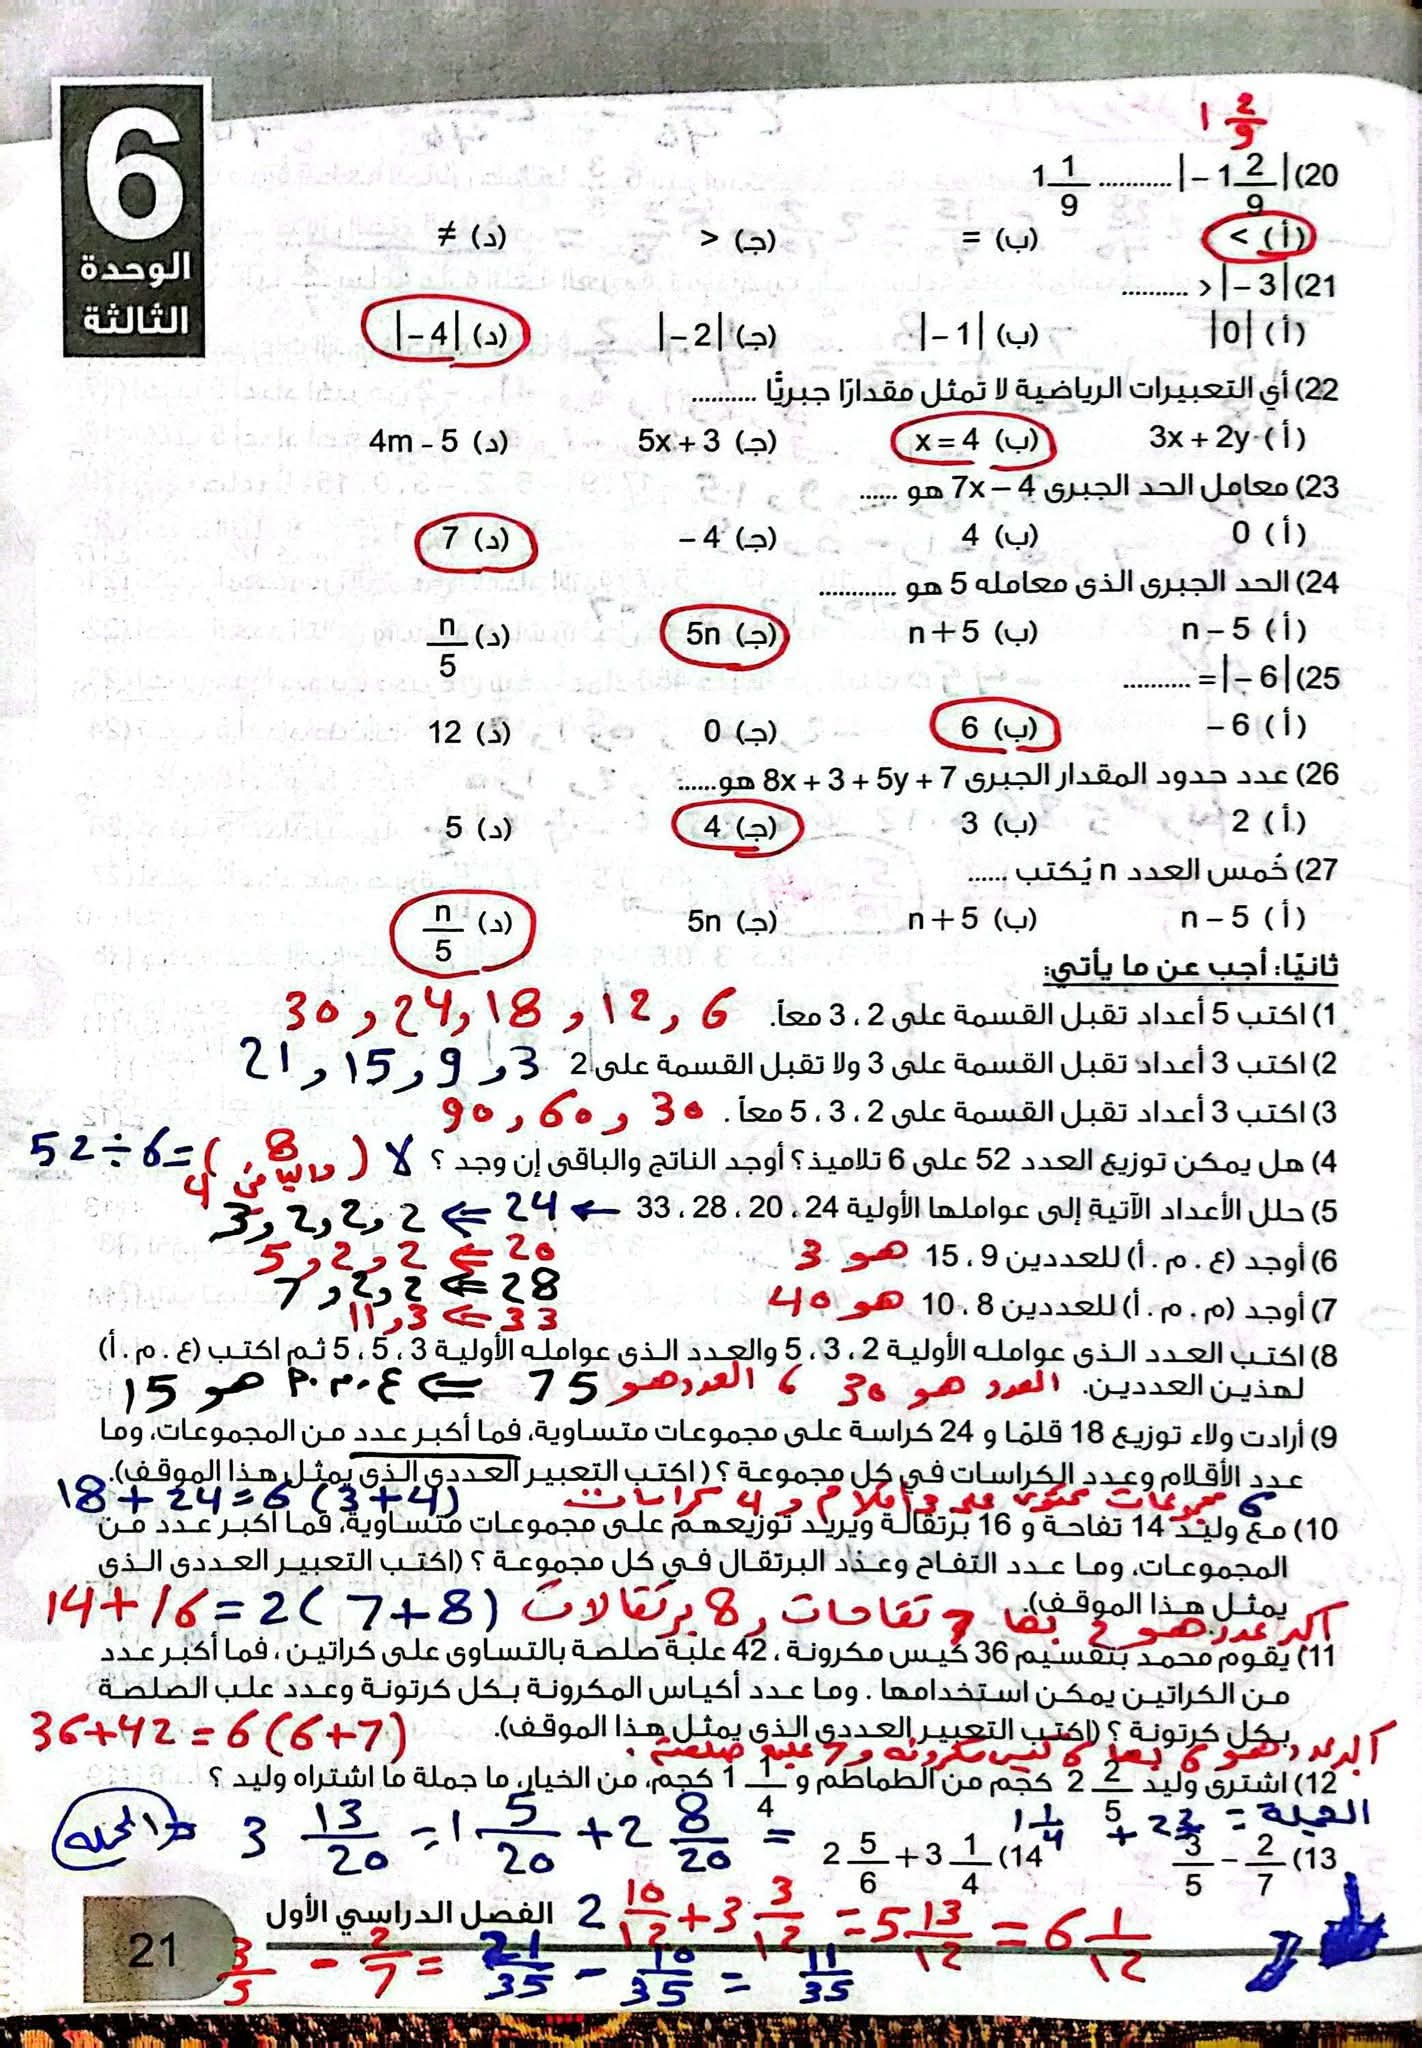 6
الوحدة
الثالثة
1 2/9
20) |- 1 2/9| ........... 1 1/9
(أ) > (ب) = (جـ) < (د) ≠
21) |- 3| < ..........
(أ) |0| (ب) |- 1| (جـ) |- 2| (د) |- 4|
22) أي التعبيرات الرياضية لا تمثل مقدارًا جبريًّا ..........
(أ) 3x + 2y (ب) x = 4 (جـ) 5x + 3 (د) 4m - 5
23) معامل الحد الجبرى 7x – 4 هو ......
(أ) 0 (ب) 4 (جـ) 4 – (د) 7
24) الحد الجبرى الذى معامله 5 هو ............
(أ) n – 5 (ب) n + 5 (جـ) 5n (د) n/5
25) |- 6| = ..........
(أ) 6 – (ب) 6 (جـ) 0 (د) 12
26) عدد حدود المقدار الجبرى 8x + 3 + 5y + 7 هو......
(أ) 2 (ب) 3 (جـ) 4 (د) 5
27) خُمس العدد n يُكتب ......
(أ) n – 5 (ب) n + 5 (جـ) 5n (د) n/5
ثانيًا: أجب عن ما يأتي:
1) اكتب 5 أعداد تقبل القسمة على 2 ، 3 معاً. 6 و 12 و 18 و 24 و 30
2) اكتب 3 أعداد تقبل القسمة على 3 ولا تقبل القسمة على 2 3 و 9 و 15 و 21
3) اكتب 3 أعداد تقبل القسمة على 2 ، 3 ، 5 معاً . 30 و 60 و 90
4) هل يمكن توزيع العدد 52 على 6 تلاميذ؟ أوجد الناتج والباقى إن وجد ؟ لا (8 والباقي 4) = 52 ÷ 6
5) حلل الأعداد الآتية إلى عواملها الأولية 24 ، 20 ، 28 ، 33 ← 24 ⇐ 2 و 2 و 2 و 3
20 ⇐ 2 و 2 و 5
6) أوجد (ع . م . أ) للعددين 9 ، 15 هو 3
28 ⇐ 2 و 2 و 7
7) أوجد (م . م . أ) للعددين 8 ، 10 هو 40
33 ⇐ 3 و 11
8) اكتب العدد الذى عوامله الأولية 2 ، 3 ، 5 والعدد الذى عوامله الأولية 3 ، 5 ، 5 ثم اكتب (ع . م . أ)
لهذين العددين. العدد هو 30 ، العدد هو 75 ⇐ ع.م.أ هو 15
9) أرادت ولاء توزيع 18 قلمًا و 24 كراسة على مجموعات متساوية، فما أكبر عدد من المجموعات، وما
عدد الأقلام وعدد الكراسات في كل مجموعة ؟ (اكتب التعبير العددى الذى يمثل هذا الموقف).
6 مجموعات تحتوى على 3 أقلام و 4 كراسات 18 + 24 = 6 (3 + 4)
10) مع وليد 14 تفاحة و 16 برتقالة ويريد توزيعهم على مجموعات متساوية، فما أكبر عدد من
المجموعات، وما عدد التفاح وعدد البرتقال في كل مجموعة ؟ (اكتب التعبير العددى الذى
يمثل هذا الموقف).
اكبر عدد هو 2 بها 7 تفاحات و 8 برتقالات 14 + 16 = 2 (7 + 8)
11) يقوم محمد بتقسيم 36 كيس مكرونة ، 42 علبة صلصة بالتساوى على كراتين ، فما أكبر عدد
من الكراتين يمكن استخدامها . وما عدد أكياس المكرونة بكل كرتونة وعدد علب الصلصة
بكل كرتونة ؟ (اكتب التعبير العددى الذى يمثل هذا الموقف). 36 + 42 = 6 (6 + 7)
اكبر عدد هو 6 بها 6 كيس مكرونه و 7 علبه صلصة .
12) اشترى وليد 2 2/5 كجم من الطماطم و 1 1/4 كجم، من الخيار، ما جملة ما اشتراه وليد ؟
الجملة = 2 2/5 + 1 1/4 = 2 8/20 + 1 5/20 = 3 13/20 الجمله
13) 3/5 – 2/7 14) 2 5/6 + 3 1/4
2 10/12 + 3 3/12 = 5 13/12 = 6 1/12
3/5 – 2/7 = 21/35 – 10/35 = 11/35
الفصل الدراسي الأول
21